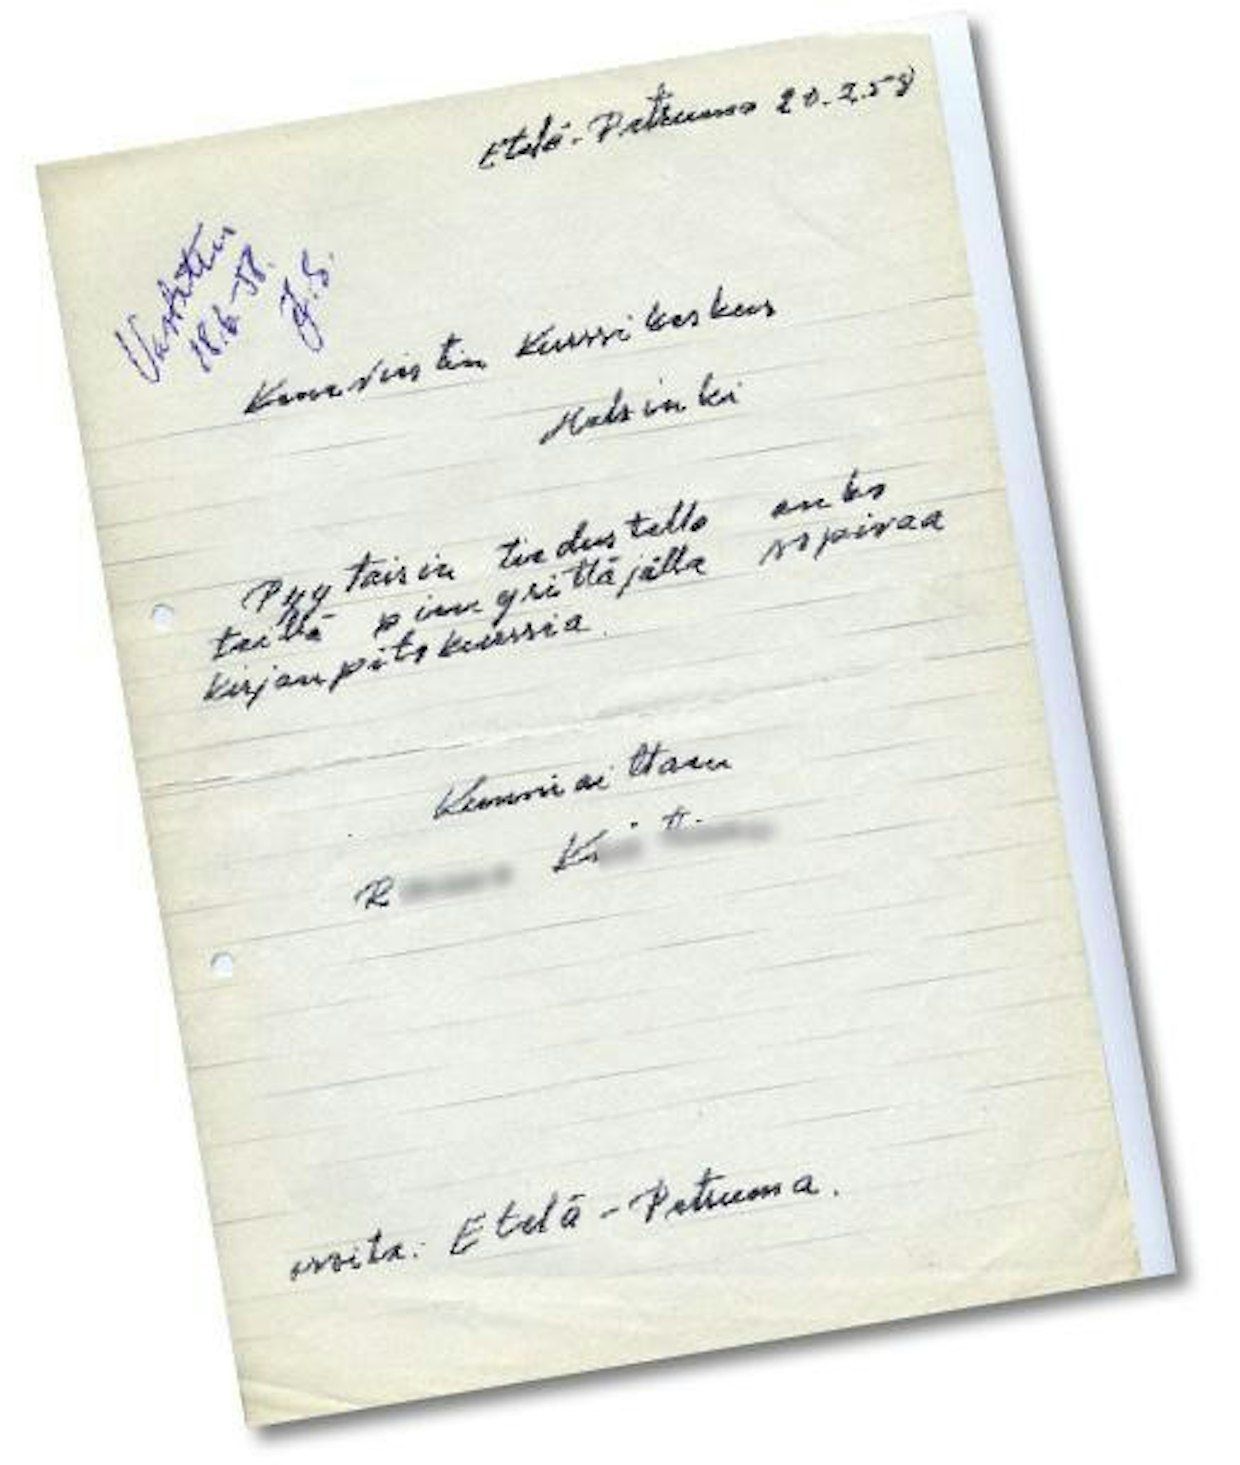 Etelä-Petruma 20.2.58
Vastattu
18.6-58.
Kansviestin Kurssikeskus
Helsinki
Pyytäisin tiedustella onko
teillä pienyrittäjälle sopivaa
kirjanpitokurssia.
Kunnioittaen
R K
osoite: Etelä-Petruma.